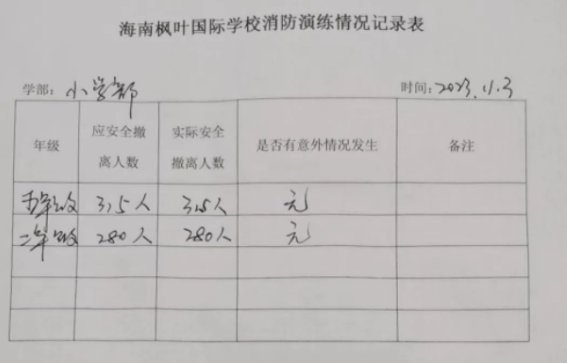 海南枫叶国际学校消防演练情况记录表
学部：小学部 时间：2023.11.3
年级 应安全撤离人数 实际安全撤离人数 是否有意外情况发生 备注
年级 315人 315人 无
二年级 280人 280人 无